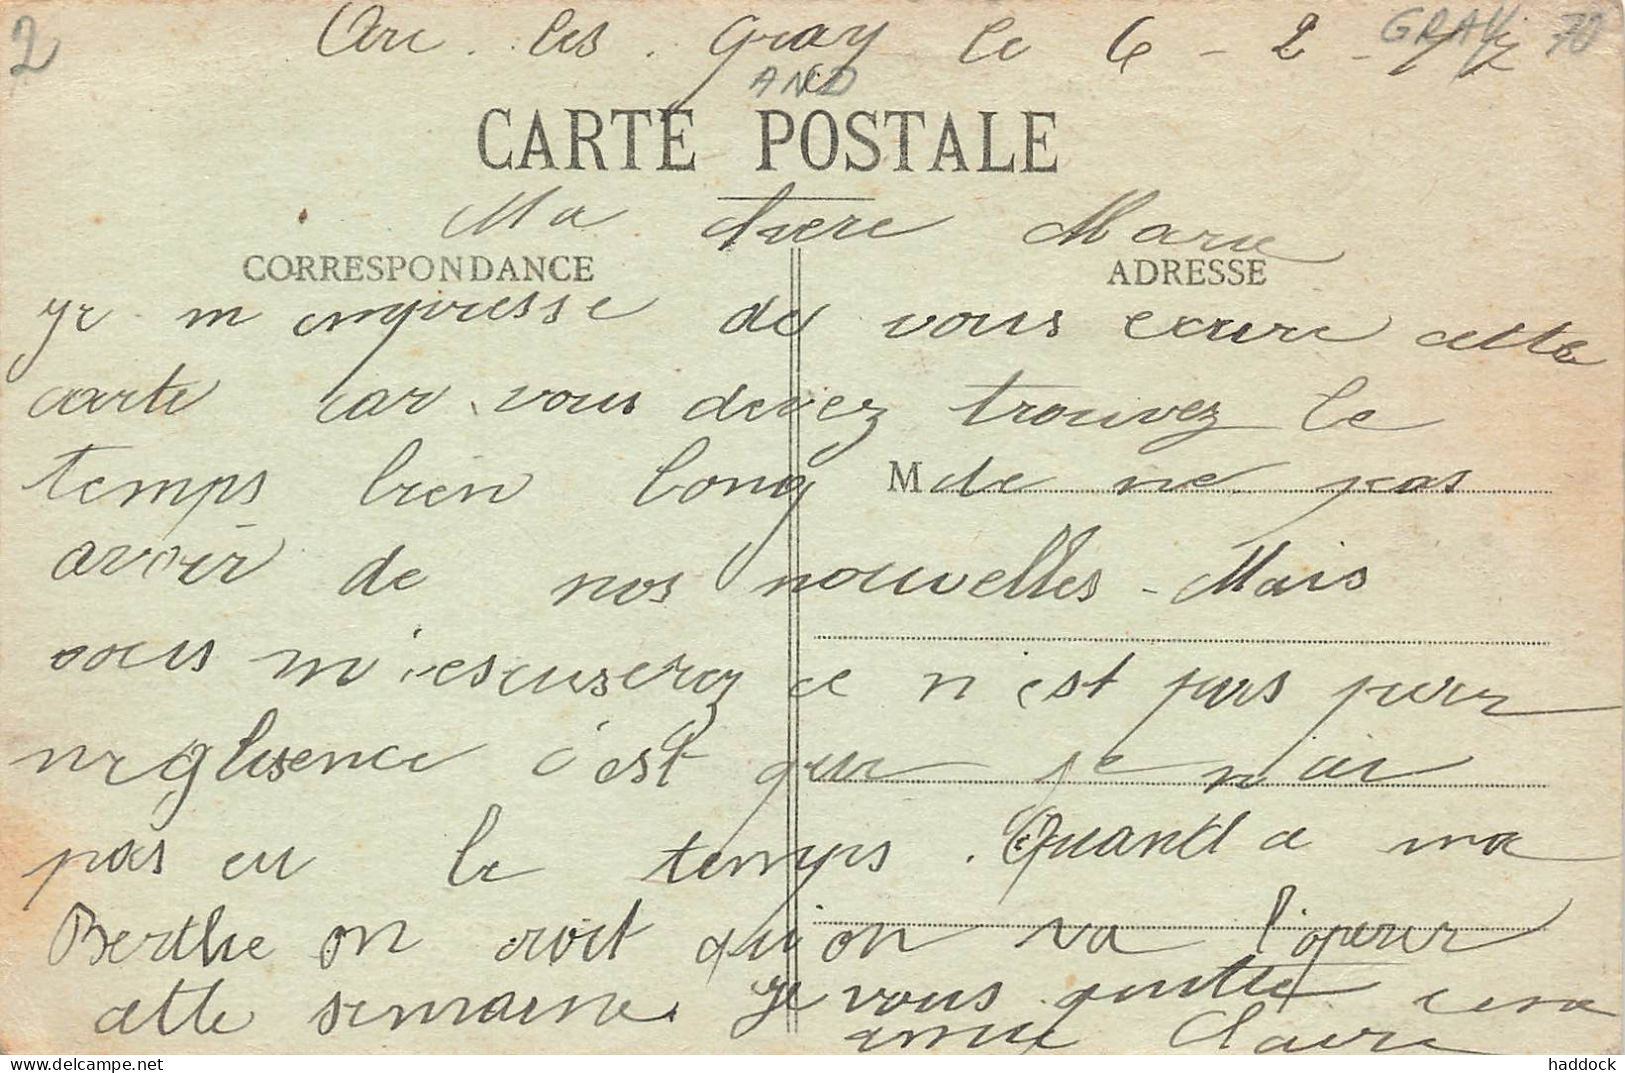 2
Arc les Gray le 6 - 2 -
GRAY 70
AND
CARTE POSTALE
Ma chere Marie
CORRESPONDANCE
ADRESSE
je m empresse de vous ecrire cette
carte car vous devez trouvez le
temps bien long de ne pas
M
avoir de nos nouvelles - Mais
vous m'escuserez ce n est pas par
neglisence c'est que je n'ai
pas eu le temps. Quand a ma
Berthe on croit qu'on va l'operer
cette semaine. je vous quitte
amie Claire
haddock